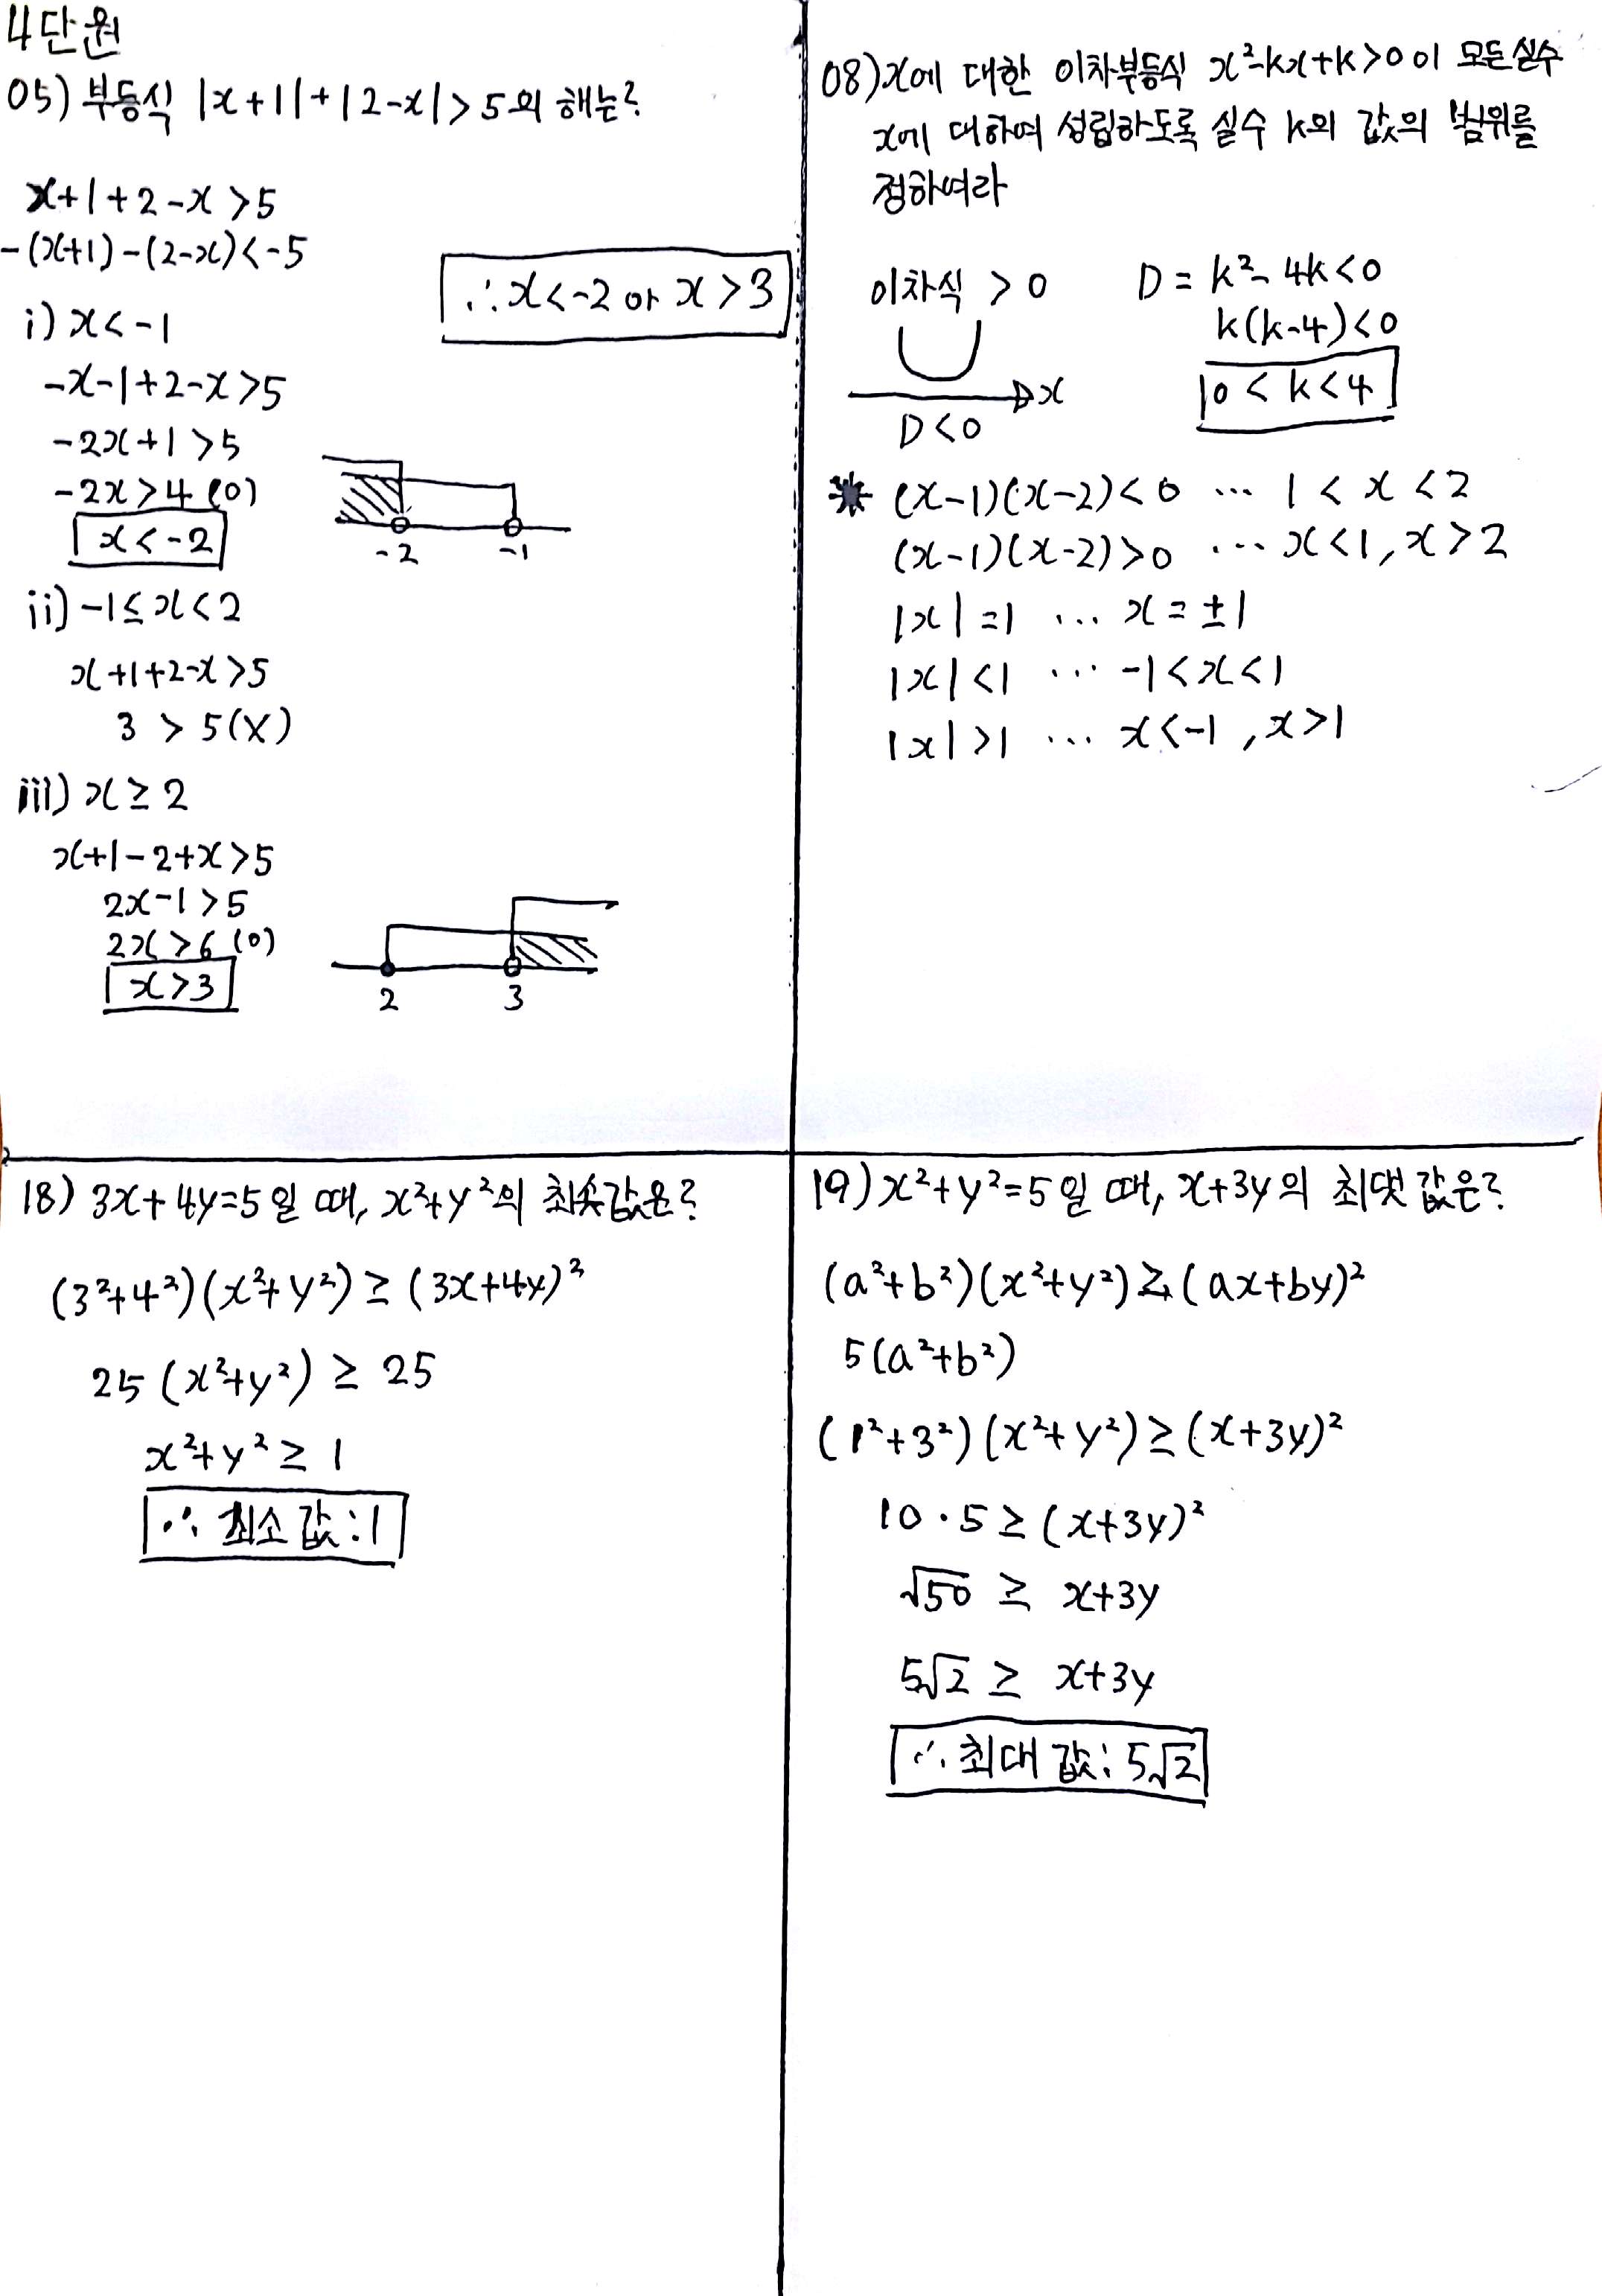 4단원
05) 부등식 |x+1|+|2-x|>5의 해는?
x+1+2-x>5
-(x+1)-(2-x)<-5
∴x<-2 or x>3
i) x<-1
-x-1+2-x>5
-2x+1>5
-2x>4 (0)
x<-2
-2 -1
ii) -1≤x<2
x+1+2-x>5
3 > 5(X)
iii) x≥2
x+1-2+x>5
2x-1>5
2x>6 (0)
x>3
2 3
08) x에 대한 이차부등식 x²-kx+k>0이 모든 실수
x에 대하여 성립하도록 실수 k의 값의 범위를
정하여라
이차식 > 0
x
D<0
D = k²-4k<0
k(k-4)<0
0<k<4
(x-1)(x-2)<0 … 1<x<2
(x-1)(x-2)>0 … x<1, x>2
|x|=1 … x=±1
|x|<1 … -1<x<1
|x|>1 … x<-1, x>1
18) 3x+4y=5일 때, x²+y²의 최솟값은?
(3²+4²)(x²+y²)≥(3x+4y)²
25(x²+y²)≥25
x²+y²≥1
∴ 최소값:1
19) x²+y²=5일 때, x+3y의 최댓값은?
(a²+b²)(x²+y²)≥(ax+by)²
5(a²+b²)
(1²+3²)(x²+y²)≥(x+3y)²
10·5≥(x+3y)²
√50 ≥ x+3y
5√2 ≥ x+3y
∴최대값: 5√2